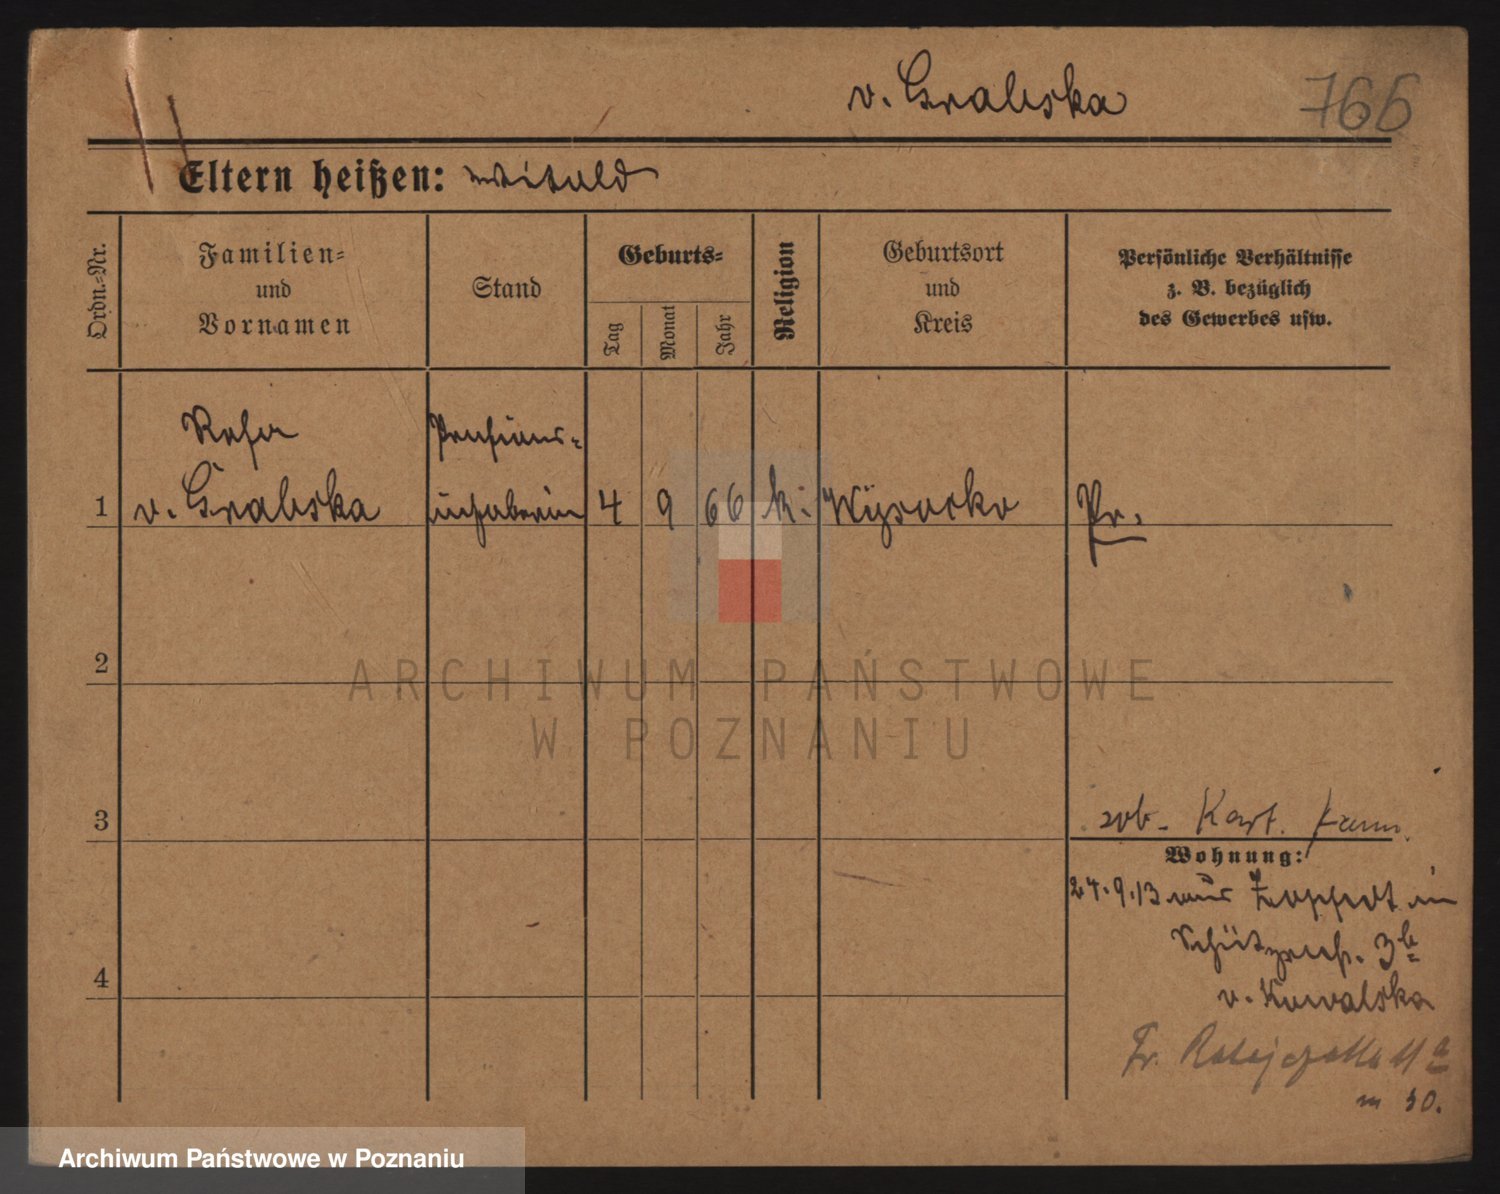 v. Grabska
766
Eltern heißen: Witold
Ordn.-Nr.
Familien-
und
Vornamen
Stand
Geburts-
Tag
Monat
Jahr
Religion
Geburtsort
und
Kreis
Persönliche Verhältnisse
z. B. bezüglich
des Gewerbes usw.
Rosa Pensions-
1 v. Grabska inhaberin 4 9 66 k. Wysocko Pr.
2
ARCHIWUM PAŃSTWOWE
W POZNANIU
3
Kart.
Wohnung:
24.9.13 aus Zoppot in
Schützenstr. 3b
v. Kowalska
4
Fr. Ratajczaka 11a
m 30.
Archiwum Państwowe w Poznaniu